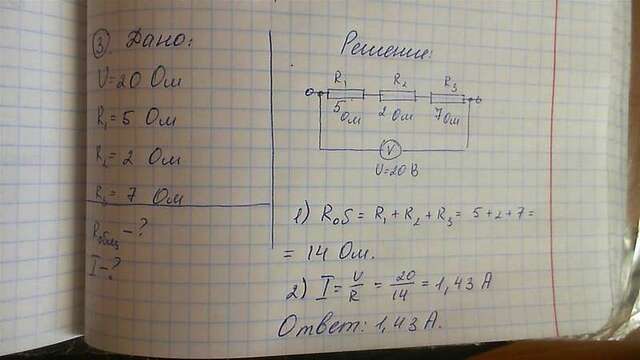 ③ Дано:
U=20 Ом
R₁=5 Ом
R₂=2 Ом
R₃=7 Ом
Rобщ-?
I-?
Решение:
R₁ R₂ R₃
5 Ом 2 Ом 7 Ом
V
U=20 В
1) Rоб = R₁ + R₂ + R₃ = 5+2+7=
= 14 Ом.
2) I = U/R = 20/14 = 1,43 А
Ответ: 1,43 А.